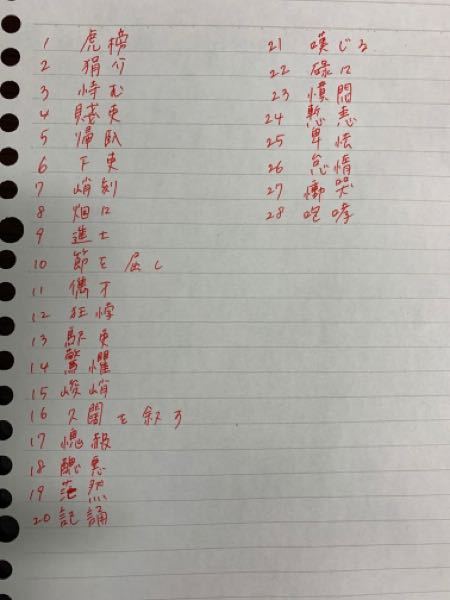 1 虎榜
2 狷介
3 恃む
4 賤吏
5 帰臥
6 下吏
7 峭刻
8 炯口
9 進士
10 節を屈し
11 儁才
12 狂悖
13 馭吏
14 驚懼
15 峻峭
16 久闊を叙す
17 愧赧
18 醜悪
19 茫然
20 記誦
21 嘆じる
22 碌口
23 憤悶
24 慙恚
25 卑怯
26 怠惰
27 慟哭
28 咆哮